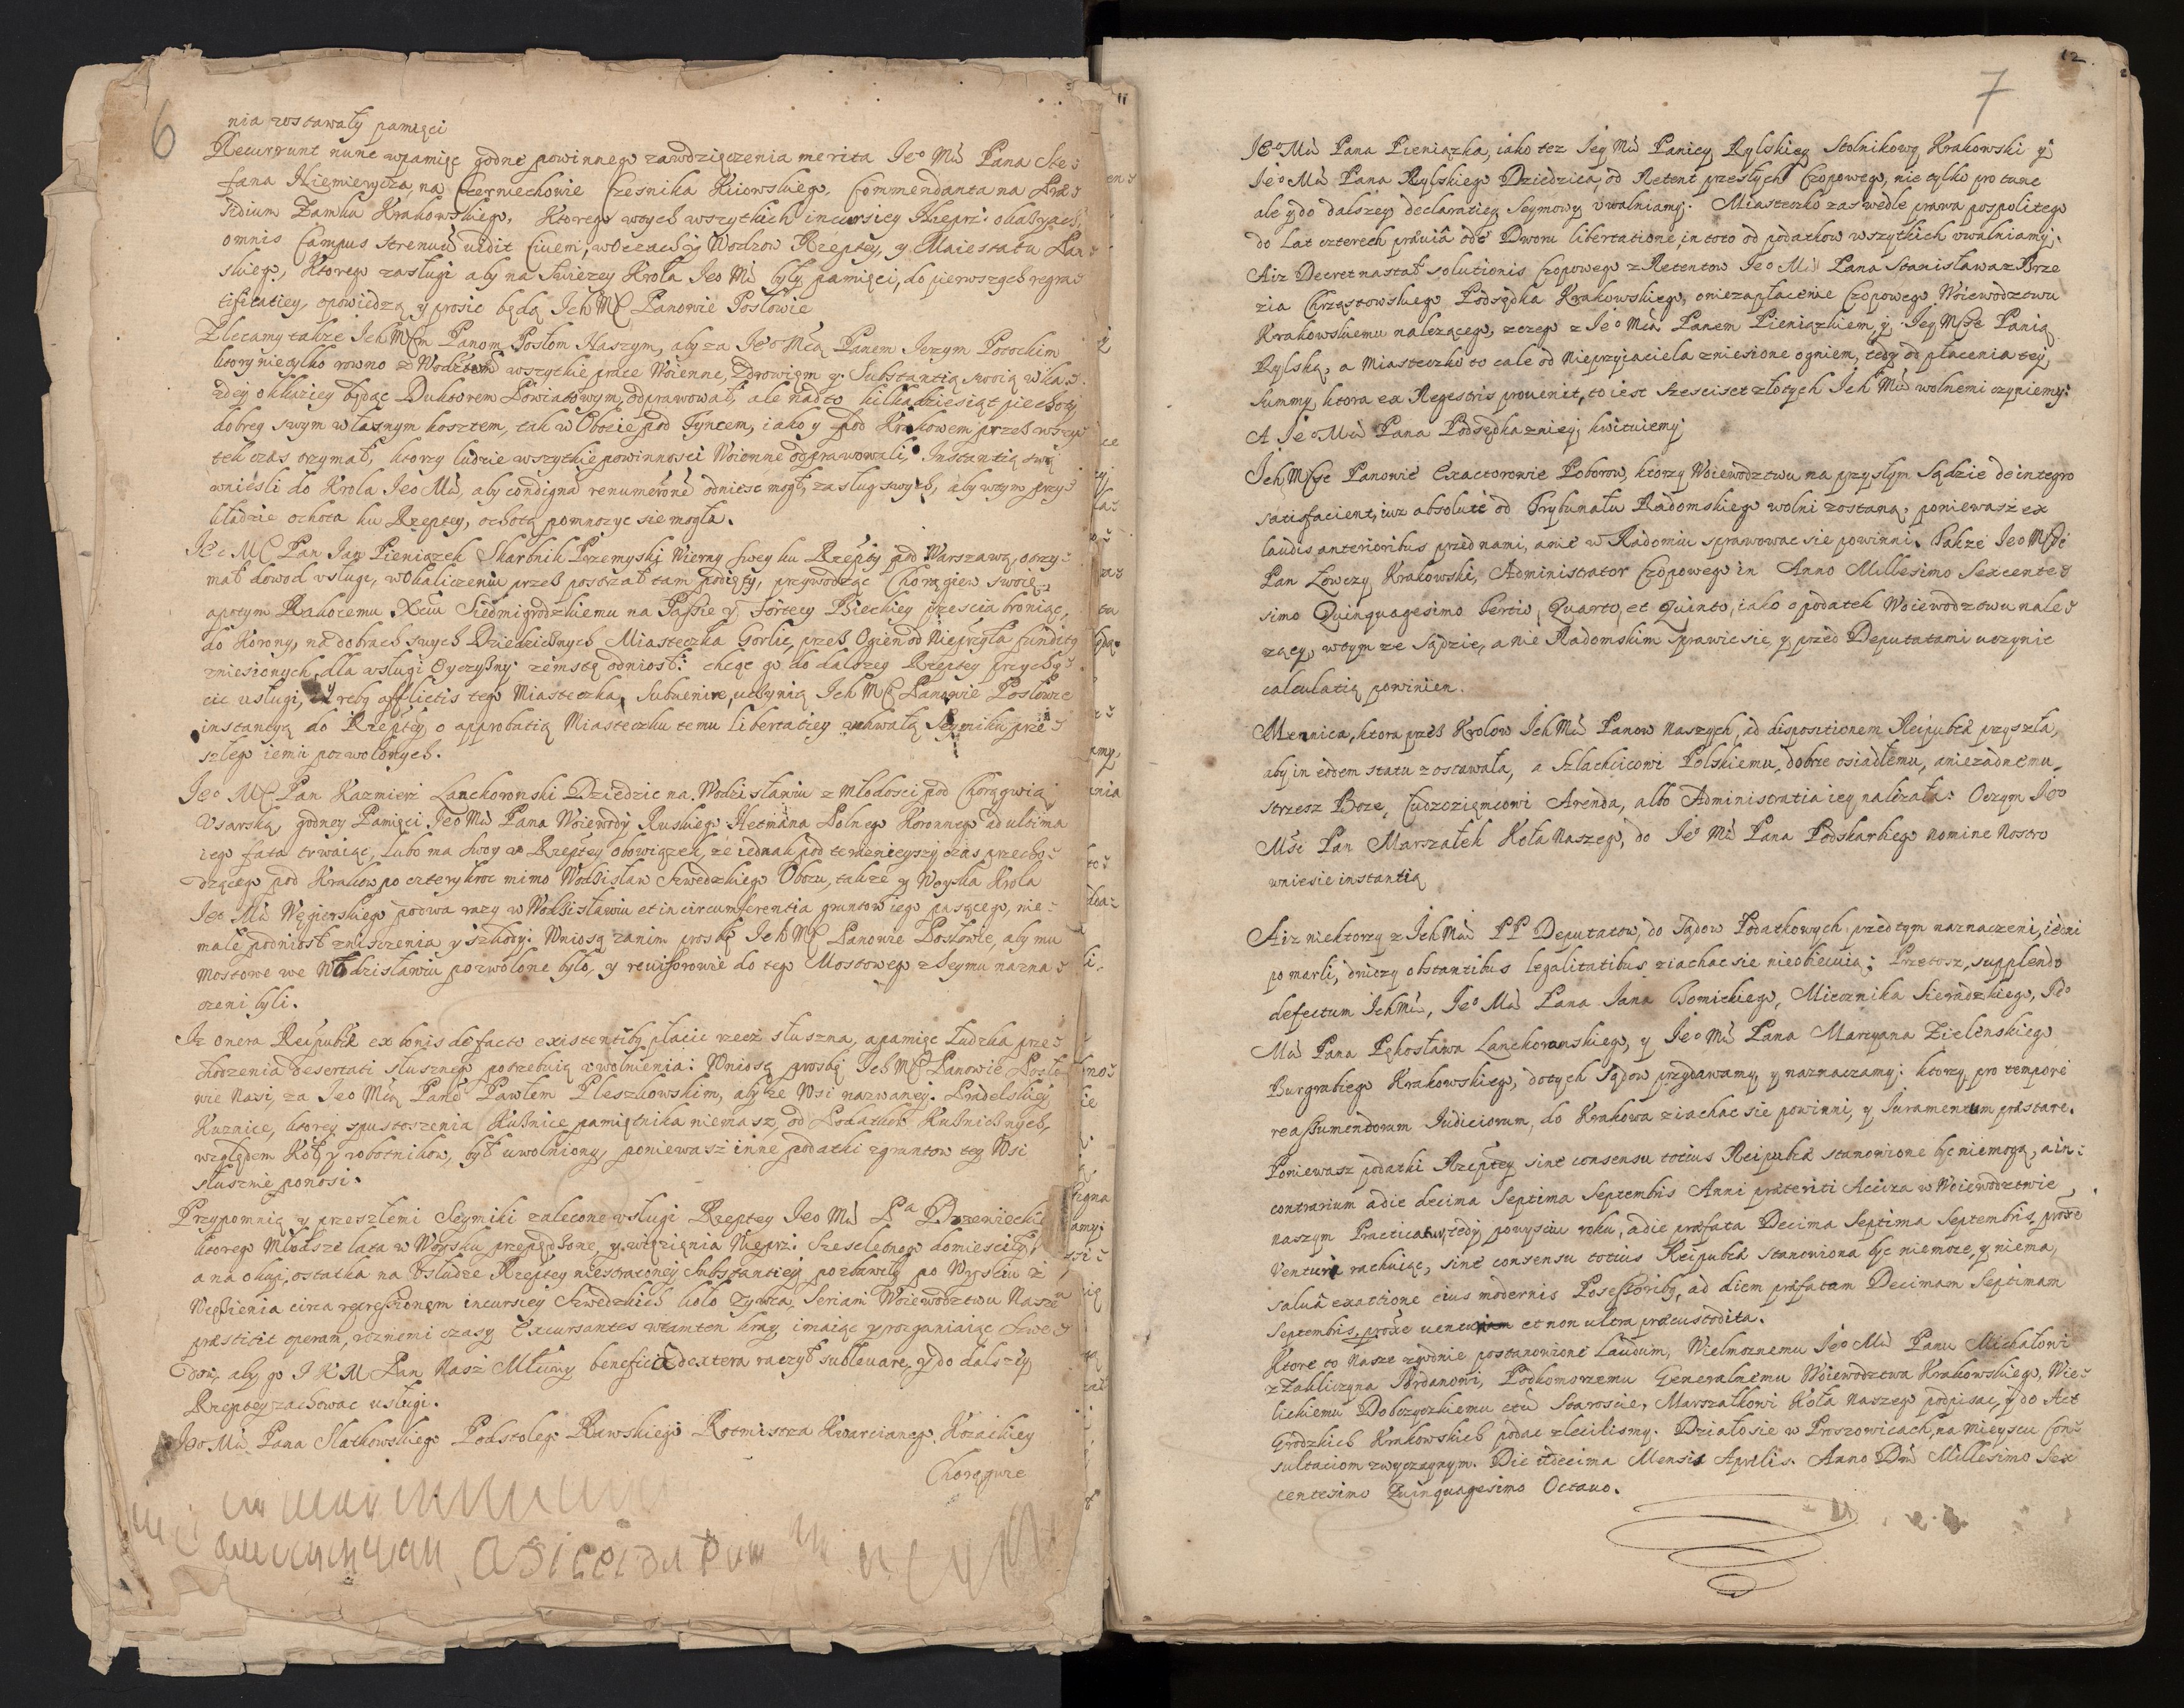 6
nia zostawały pamięci
Recurrunt nunc wpamięc godne powinnego zawdzięczenia merita Jeo Mći Pana Ste
fana Niemierycza, na Czerniechowie Czesnika Kiiowskiego, Commendanta na Præ
sidium Zamku Krakowskiego, Ktorego wtych wszytkich incursiey Nieprz: okazyach,
omnis Campus strenuũ vidit Ciuem, woczach y Wodzow Rzeptey, y Maiestatu Pań
skiego, Ktorego zasługi aby na świezey Krola Jeo Mći były pamięci, do pierwszych regra
tificatiey, opowiedzą y prosic będą Ich MC Panowie Posłowie
Zlecamy takze Ich MCm Panom Posłom Naszym, aby za Jeo Mćią Panem Jerzym Potockim
ktory nietylko rowno z Wodzami wszytkie prace Woienne, Zdrowięm y Substantią swoią wka
zdey okkaziey będąc Duktorem Powiatowym, odprawował, ale nadto kilkadziesiąt piechoty
dobrey swym własnym kosztem, tak w Obozie pod Tyncem, iako y pod Krakowem przez wszy
tek czas trzymał, ktorzy ludzie wszytkie powinnosci Woienne odprawowali, Instantią swą
wniesli do Krola Jeo Mći, aby condigna renumeroñe odniesc mogł, zasług swych, aby wtym przy
kładzie ochota ku Rzeptey, ochotą pomnozyc sie mogła.
Jeo MC Pan Jan Pieniązek Skarbnik Przemyski Wierny swey ku Rzepty pod Warszawą, otrzy
mał dowod usługi, wokaliczeniu przez postrzał tam podięty, przywodząc Chorągiew swoię,
apotym Rakocemu Xciu Siedmigrodzkiemu na Passie y Fortecy Bieckiey przescia broniąc,
do Korony, na dobrach swych Dziedzicznych Miasteczka Gorlic, przez Ogien od Nieprzyła funditg
zniesionych, dla usługi Oyczyzny zemstę odniosł: chcąc go do dalszey Rzeptey przychę
cic usługi, y reby afflictis tego Miasteczka, Subuenire, uczynią Ich MC Panowie Posłowie
instancyą do Rzepty, o approbatią Miasteczku temu libertatiey uchwałą Seymiku prze
szłego iemu pozwolonych.
Jeo MC Pan Kazmierz Lanckoronski Dziedzic na Wodzisławiu z młodosci pod Chorągwią
Usarską, godney Pamięci Jeo Mći Pana Woiewody Ruskiego Hetmana Polnego Koronnego ad ultima
iego fata trwaiąc, lubo ma swoy w Rzeptey obowiązek, ze iednak pod teraznieyszy czas przecho
dzącego pod Krakow po cztery kroc mimo Wodzisław Szwedzkiego Obozu, takze y Woyska Krola
Jeo Mći Węgierskiego podwa razy w Wodzisławiu et in circumferentia gruntow iego pasącego, nie
małe podniosł zniszczenia y szkody: Wniosą zanim prosbę Ich MC Panowie Posłowie, aby mu
mostowe we Wodzisławiu pozwolone było, y reuisorowie do tego Mostowego z Seymu nazna
czeni byli.
Iz onera Reipubcæ ex bonis defacto existentiby płacic rzecz słuszna, apamięc Ludzka prze
chodzenia desertati słusznego potrzebuią uwolnienia: Wniosą prosbę Ich MC Panowie Posło
wie Nasi, za Jeo Mćią Pane Pawłem Pleszkowskim, aby ze Wsi nazwaney Pradelskiey
Kuznice, ktorey spustoszenia Kuznice pamiętnika niemasz, od Podatkow Kuznicznych,
względem Kół, y robotnikow, był uwolniony, poniewasz inne podatki zgruntow tey Wsi
słusznie ponosi.
Przypomnią y przeszłemi Seymiki zalecone usługi Rzeptey Jeo Mći Pa Drzewieckie
ktorego Młodsze lata w Woysku przepędzone, y więzięnia Nieprz: Szescletnego domiescily,
a na okup, ostatka na usłudze Rzeptey niestraconey Substantiey pozbawiły po Wyisciu z
Więzienia circa regressionem incursiey Szwedzkich koło Zywca, Seriam Woiewodztwu Nasze
præstitit operam, roznemi czasy Excursantes wtamten kray, imaiąc y rozganiaiąc Szwe
dow, aby go J K M Pan Nasz Młciwy beneficã dextera raczył subleuare, y do dalszey
Rzeptey zachowac usługi.
Jeo Mći Pana Słatkowskiego Podstolego Rawskiego Rotmistrza Kwarcianego Kozackiey
Chorągwie
12
7
Jeo Mći Pana Pieniązka, iako tez Jey Mći Paniey Rylskiey Stolnikowy Krakowski y
Jeo Mći Pana Rylskiego Dziedzica, od Retent przeszłych Czopowego, nie tylko pro tunc
ale y do dalszey declaratiey Seymowy uwalniamy. Miasteczko zas wedle prawa pospolitego
do Lat czterech præuiâ odé Dworu libertatione, in toto od podatkow wszytkich uwalniamy.
A iz Decret nastał solutionis Czopowego z Retentow Jeo Mći Pana Stanisława z Brze
zia Chrząstowskiego Podsędka Krakowskiego, o niezapłacenie Czopowego Woiewodztwu
Krakowskiemu nalezącego, zczego z Jeo Mćią Panem Pieniązkiem y Jey Mcią Panią
Rylską, a Miasteczko to cale od Nieprzyiaciela zniesione ogniem, tedy od płacenia tey
Summy ktora ex Regestris prouenit, to iest Szescset złotych Ich Mći wolnemi czyniemy:
A Jeo Mći Pana Podsędka zniey kwituiemy
Ich Mće Panowie Exactorowie Poborow, ktorzy Woiewodztwu na przyszłym Sądzie deintegro
satisfacient, iuz absolutè od Trybunału Radomskiego wolni zostaną, poniewasz ex
laudis anterioribus przed nami, a nie w Radomiu sprawowac sie powinni. Takze Jeo Mći
Pan Łowczy Krakowski, Administrator Czopowego in Anno Millesimo Sexcente
simo Quinquagesimo Tertio, Quarto, et Quinto, iako o podatek Woiewodztwu nale
zący, wtym ze Sądzie, a nie Radomskim sprawic sie, y przed Deputatami uczynic
calculatią powinien.
Mennica, ktora przez Krolow Ich Mći Panow Naszych, ad dispositionem Reipubcæ przyszła,
aby in eodem statu zostawała, a Szlachcicowi Polskiemu, dobrze osiadłemu, aniezadnemu,
strzesz Boze, Cudzoziemcowi Arenda, albo Administratia iey nalezała: Oczym Jeo
Mść Pan Marszałek Koła Naszego, do Jeo Mći Pana Podskarbiego Nomine Nostro
wniesie instantią
A iz niektorzy z Ich Mći PP Deputatow, do Sądow Podatkowych, przed tym naznaczeni, iedni
pomarli, drudzy obstantibus legalitatibus ziachac sie nieobiecuią: Przetosz, supplendo
defectum Ichmći, Jeo Mći Pana Jana Tomickiego, Miecznika Sieradzkiego, Jeo
Mći Pana Pękosława Lanckoranskiego, y Jeo Mći Pana Marcyana Zielenskiego
Burgrabiego Krakowskiego, dotych Sądow przydawamy, y naznaczamy: ktorzy pro tempore
reassumendorum Iudiciorum, do Krakowa ziachac sie powinni, y Iuramentum præstare.
Poniewasz podatki Rzeptey sine consensu totius Reipubcæ stanowione byc niemogą, a in
contrarium adie decima Septima Septembris Anni præteriti Aciza w Woiewodztwie
naszym Practicatur, tedy powysciu roku, adie præfata Decima Septima Septembris, proxe
Venturi rachuiąc, sine consensu totius Reipubcæ Stanowiona byc niemoze, y niema,
saluâ exactione eius modernis Possessoriby, ad diem præfatam Decimam Septimam
Septembris, proxe uenturi et non ultra præcustodita.
Ktore to Nasze zgodnie postanowione Laudum, Wielmoznemu Jeo Mći Panu Michałowi
z Zakliczyna Jordanowi, Podkomorzemu Generalnemu Woiewodztwa Krakowskiego, Wie
lickiemu Dobczyckiemu etc Staroscie, Marszałkowi Koła Naszego podpisac, y do Act
Grodzkich Krakowskich podac zlecilismy. Działo sie w Proszowicach, na Mieyscu Con
sultaciom zwyczaynym. Die vndecima Mensis Aprilis. Anno Dni Millesimo Sex
centesimo Quinquagesimo Octauo.